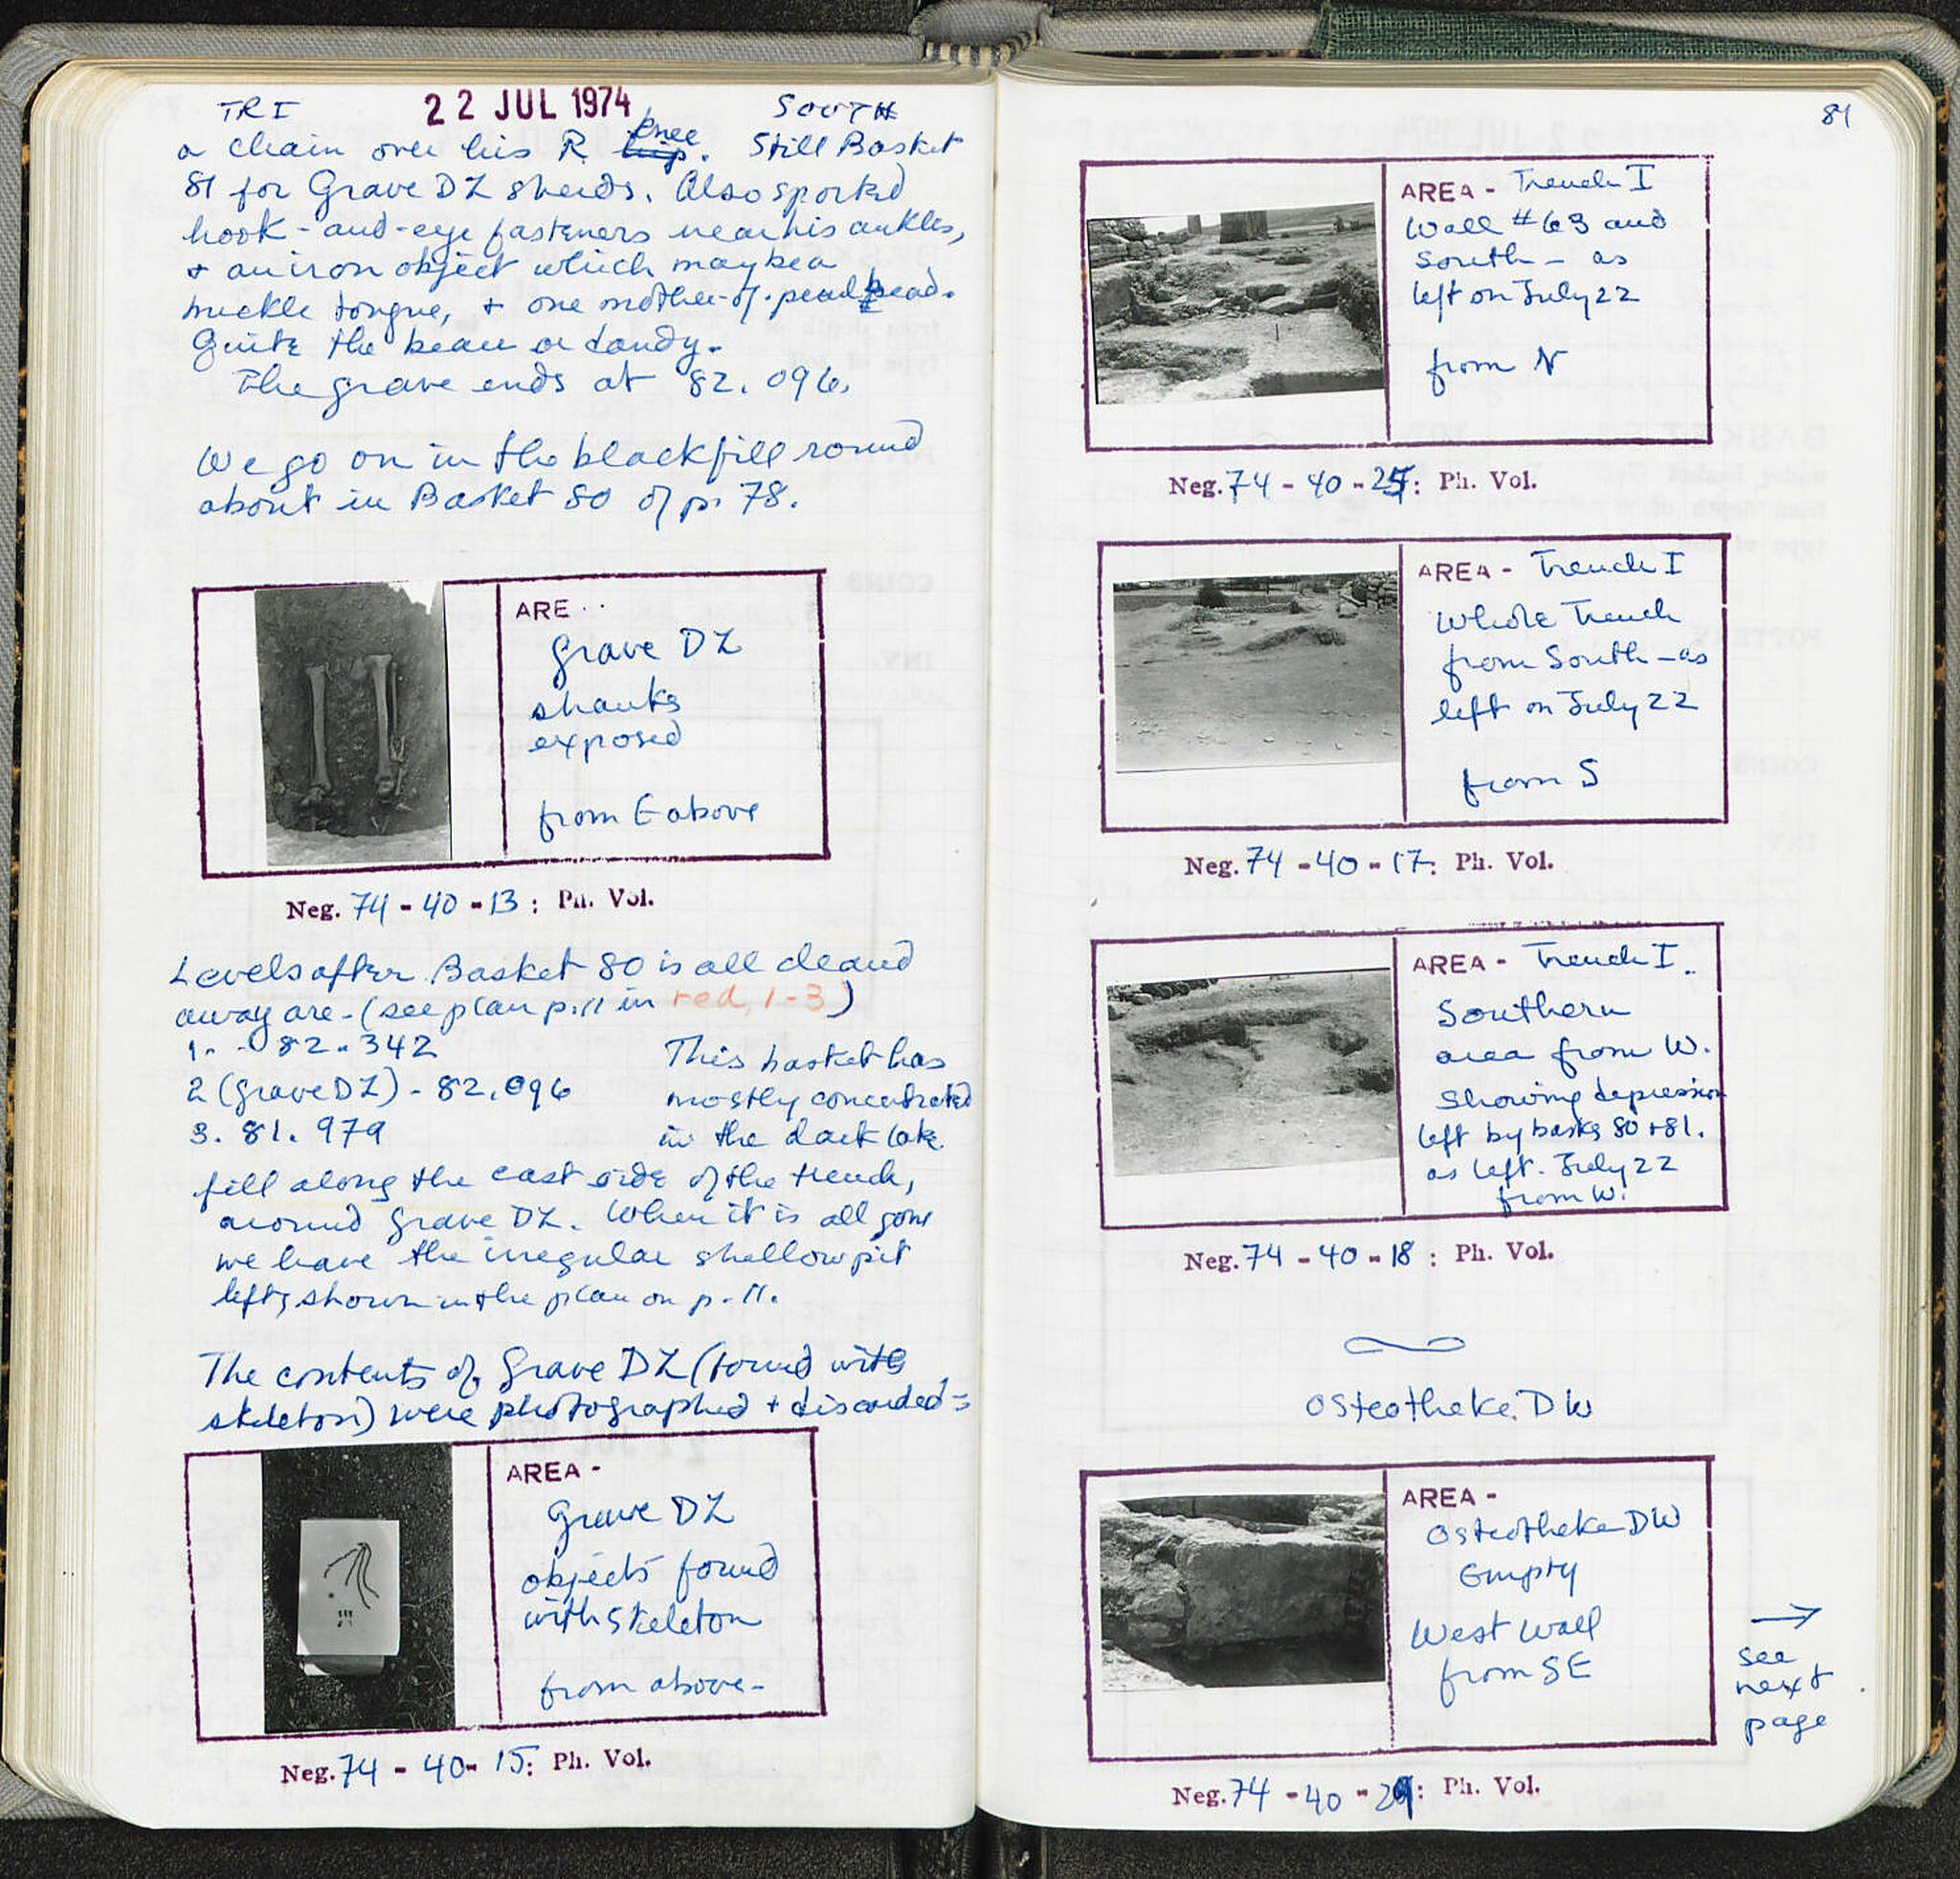 TR I 22 JUL 1974 SOUTH
a chain over his R. hip knee. Still Basket
81 for Grave DZ sherds. Also sported
hook-and-eye fasteners near his ankles,
+ an iron object which may be a
buckle tongue, + one mother-of-pearl bead.
Quite the beau or dandy.
The grave ends at 82.096.
We go on in the black fill round
about in Basket 80 of p. 78.
ARE
Grave DZ
shanks
exposed
from E above
Neg. 74-40-13: Ph. Vol.
Levels after Basket 80 is all cleaned
away are - (see plan p. 11 in red, 1-3)
1. - 82.342
2 (Grave DZ) - 82.096
3. 81.979
This basket has
mostly concentrated
in the dark
fill along the east side of the trench,
around Grave DZ. When it is all gone
we have the irregular shallow pit
left, shown in the plan on p. 11.
The contents of Grave DZ (found with
skeleton) were photographed + discarded =
AREA -
Grave DZ
objects found
with skeleton
from above -
Neg. 74-40-15: Ph. Vol.
81
AREA - Trench I
Wall #63 and
South - as
left on July 22
from N
Neg. 74-40-25: Ph. Vol.
AREA - Trench I
Whole Trench
from South - as
left on July 22
from S
Neg. 74-40-17: Ph. Vol.
AREA - Trench I.
Southern
area from W.
showing depression
left by basks 80 + 81.
as left. July 22
from W.
Neg. 74-40-18: Ph. Vol.
Osteotheke DW
AREA -
Osteotheke DW
Empty
West Wall
from SE
→
see
next
page
Neg. 74-40-29: Ph. Vol.